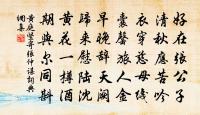 好在張公子
清秋應苦吟
衣穿慈母线
囊罄旅人金
早晚辭天闕
歸來慰陸沈
黃花一樽酒
期與尔同斟
黃庭堅寄張仲謀詞典
網集